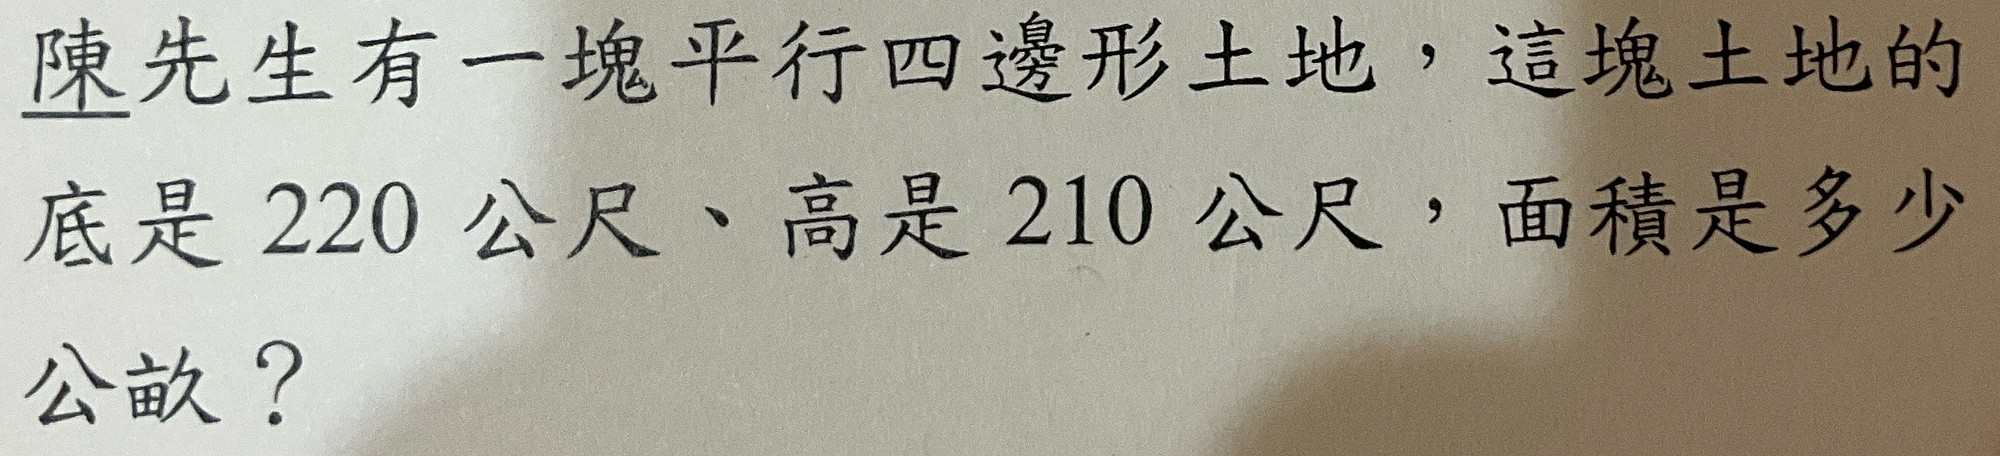 陳先生有一塊平行四邊形土地，這塊土地的
底是 220 公尺、高是 210 公尺，面積是多少
公畝？